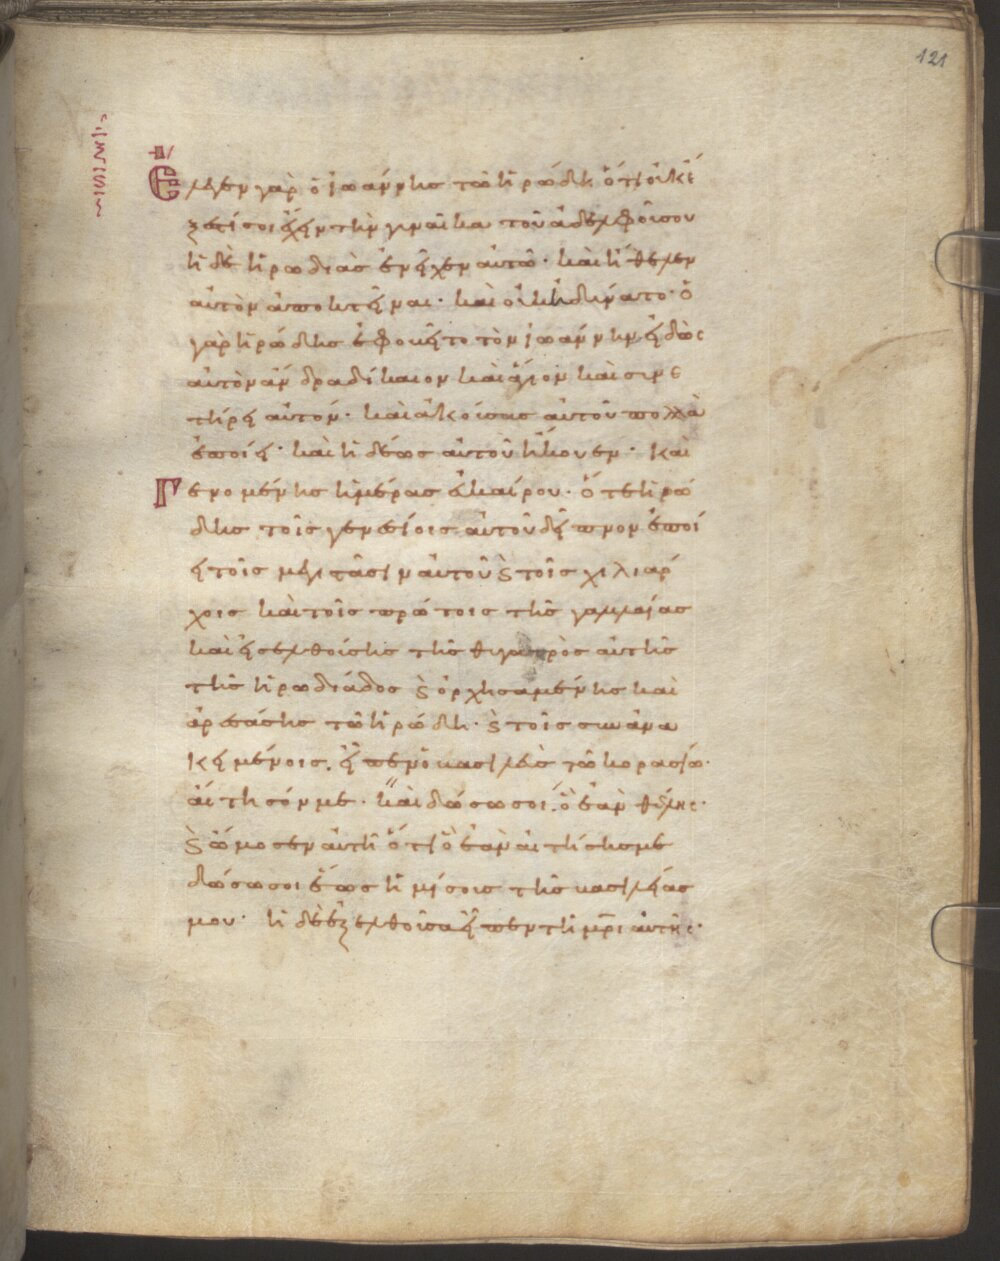 121
Ἔλεγεν γὰρ ὁ ἰωάννης τῶ ἡρώδη ὅτι οὐκ έ
ξεστί σοι ἔχειν τὴν γυναῖκα τοῦ ἀδελφοῦ σου
ἡ δὲ ἡρωδιὰς ἐνεῖχεν αὐτῶ· καὶ ἤθελεν
αὐτὸν ἀποκτεῖναι· καὶ οὐκ ἠδύνατο· ὁ
γὰρ ἡρώδης ἐφοβεῖτο τὸν ἰωάννην εἰδὼς
αὐτὸν ἄνδρα δίκαιον καὶ ἅγιον καὶ συνε
τήρει αὐτόν· καὶ ἀκούσας αὐτοῦ πολλὰ
ἐποίει· καὶ ἡδέως αὐτοῦ ἤκουεν· καὶ
Γενομένης ἡμέρας εὐκαίρου· ὅτε ἡρώ
δης τοῖς γενεσίοις αὐτοῦ δεῖπνον ἐποί
ει τοῖς μεγιτᾶσιν αὐτοῦ ϗ τοῖς χιλιάρ
χοις καὶ τοῖς πρώτοις τῆς γαλιλαίας
καὶ εἰσελθούσης τῆς θυγατρὸς αὐτῆς
τῆς ἡρωδιάδος ϗ ὀρχησαμένης καὶ
ἀρεσάσης τῶ ἡρώδη· ϗ τοῖς συνανα
κειμένοις. εἶπεν ὁ βασιλεὺς τῶ κορασίω·
αἴτησόν με· καὶ δώσω σοι. ὃ ἐὰν θέλης·
ϗ ὤμοσεν αὐτῆ ὅτι ὃ ἐὰν αἰτήσης με
δώσω σοι ἕως ἡμίσους τῆς βασιλείας
μου· ἡ δὲ ἐξελθοῦσα εἶπεν τῆ μρ̅ι αὐτῆς·